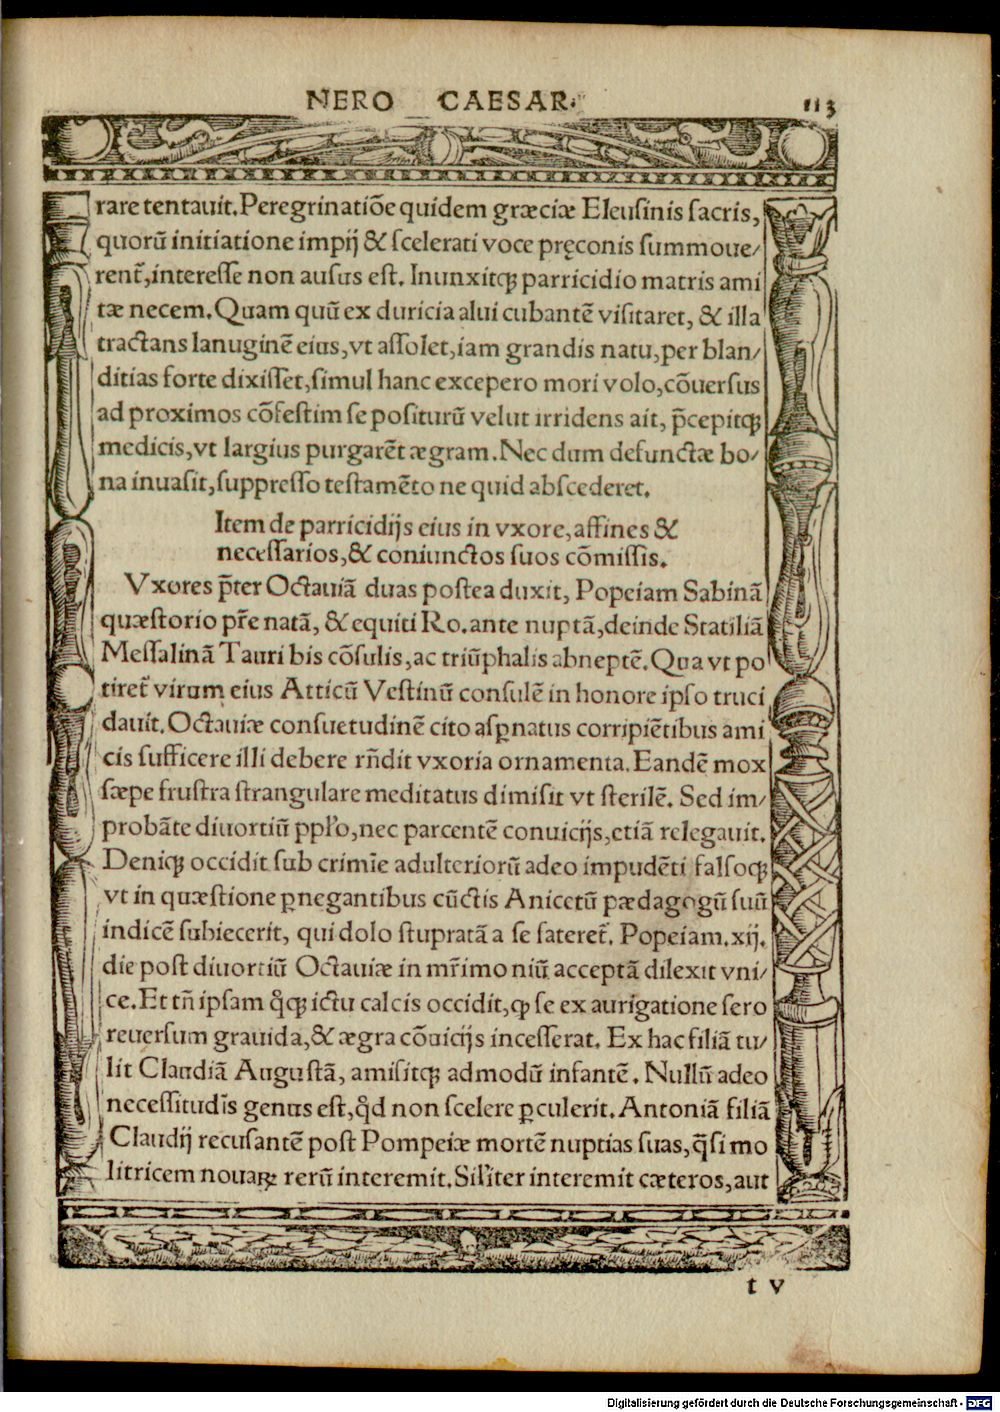 NERO CAESAR. 113
rare tentauit. Peregrinatiõe quidem græciæ Eleusinis sacris,
quorũ initiatione impij & scelerati voce pręconis summoue/
rent᷑, interesse non ausus est. Inunxitqꝫ parricidio matris ami
tæ necem. Quam quũ ex duricia alui cubantẽ visitaret, & illa
tractans lanuginẽ eius, vt assolet, iam grandis natu, per blan/
ditias forte dixisset, simul hanc excepero mori volo, cõuersus
ad proximos cõfestim se positurũ velut irridens ait, p̃cepitqꝫ
medicis, vt largius purgarẽt ægram. Nec dum defunctæ bo/
na inuasit, suppresso testamẽto ne quid abscederet.
Item de parricidijs eius in vxore, affines &
necessarios, & coniunctos suos cõmissis.
Vxores p̃ter Octauiã duas postea duxit, Popeiam Sabinã
quæstorio pr̃e natã, & equiti Ro. ante nuptã, deinde Statiliã
Messalinã Tauri bis cõsulis, ac triũphalis abneptẽ. Qua vt po
tiret᷑ virum eius Atticũ Vestinũ consulẽ in honore ipso truci
dauit. Octauiæ consuetudinẽ cito asꝑnatus corripiẽtibus ami
cis sufficere illi debere rñdit vxoria ornamenta. Eandẽ mox
sæpe frustra strangulare meditatus dimisit vt sterilẽ. Sed im/
probãte diuortiũ ppľo, nec parcentẽ conuicijs, etiã relegauit.
Deniqꝫ occidit sub crimĩe adulteriorũ adeo impudẽti falsoqꝫ
vt in quæstione ꝑnegantibus cũctis Anicetũ pædagogũ suũ
indicẽ subiecerit, qui dolo stupratã a se fateret᷑. Popeiam. xij.
die post diuortiũ Octauiæ in mr̃imo niũ acceptã dilexit vni/
ce. Et tñ ipsam q̊qꝫ ictu calcis occidit, ꝙ se ex aurigatione sero
reuersum grauida, & ægra cõuicijs incesserat. Ex hac filiã tu/
lit Claudiã Augustã, amisitqꝫ admodũ infantẽ. Nullũ adeo
necessitudĩs genus est, q̊d non scelere ꝑculerit. Antoniã filiã
Claudij recusantẽ post Pompeiæ mortẽ nuptias suas, q̃si mo
litricem nouaꝝ rerũ interemit. Siľiter interemit cæteros, aut
t v
Digitalisierung gefördert durch die Deutsche Forschungsgemeinschaft - DFG